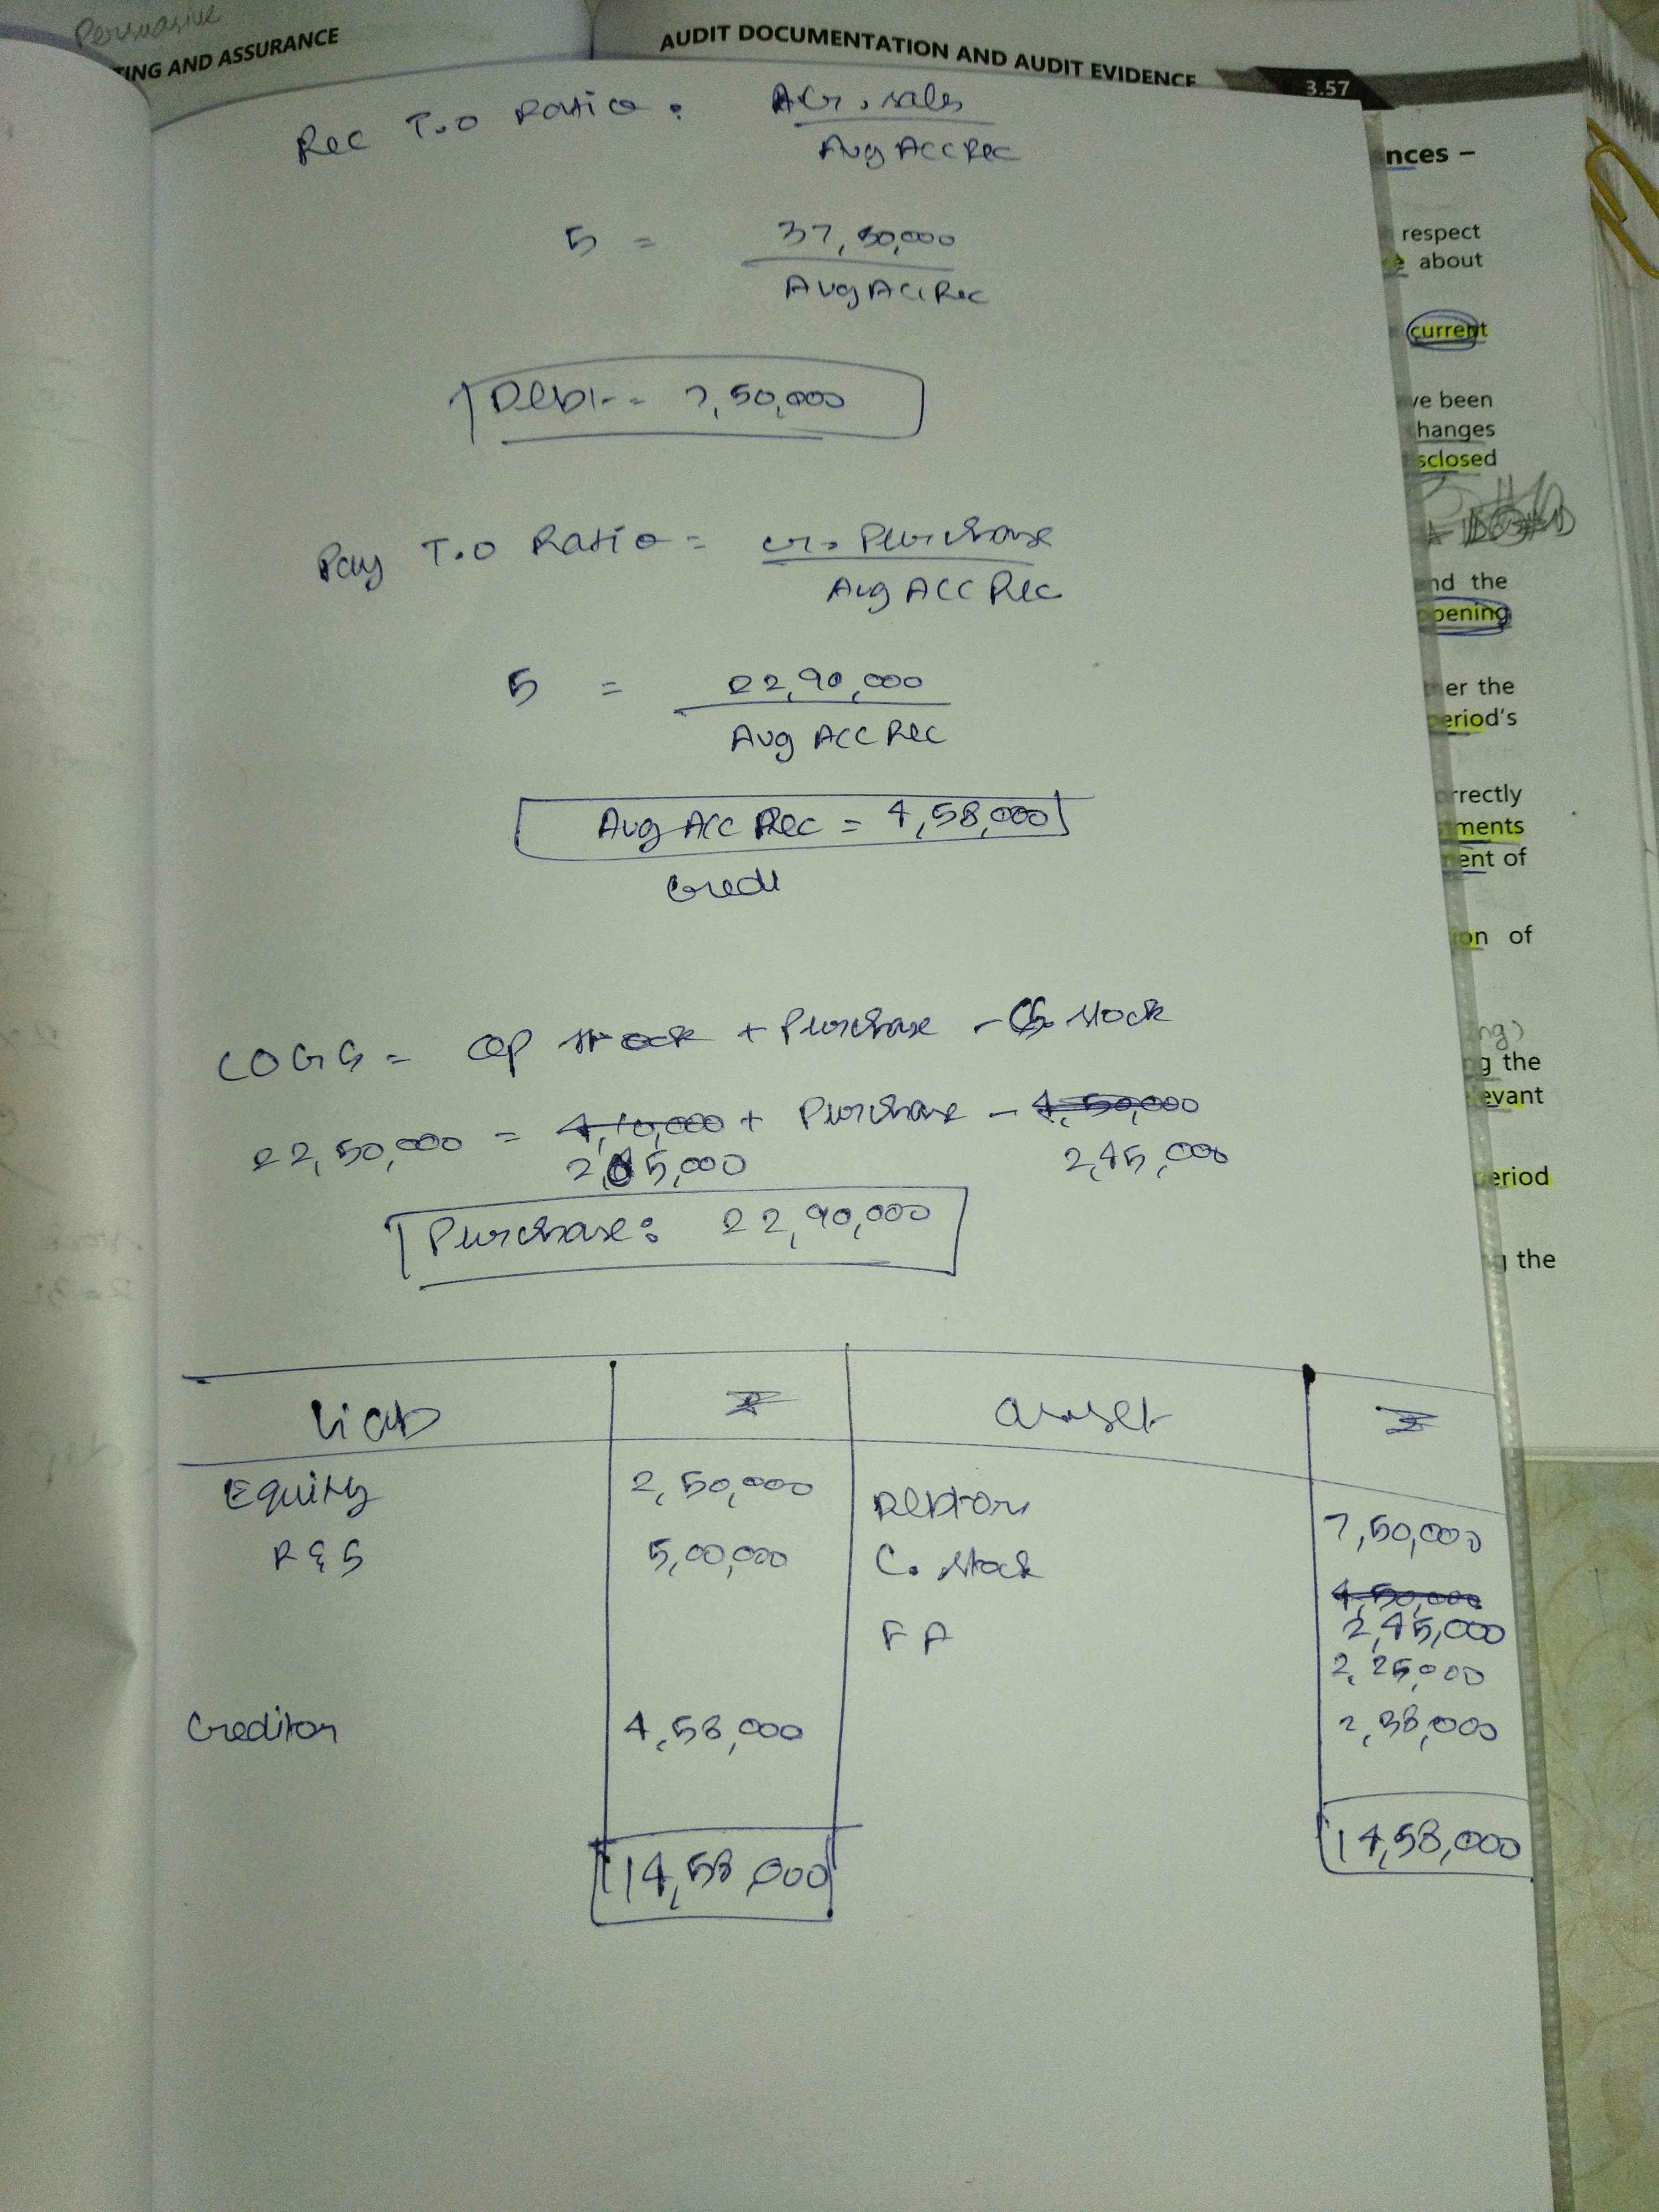 Persuasive
TING AND ASSURANCE
AUDIT DOCUMENTATION AND AUDIT EVIDENCE
3.57
Rec T.O Ratio = Cr. sales
Avg Acc Rec
5 = 37,50,000
Avg Acc Rec
Debt = 7,50,000
Pay T.O Ratio = cr. Purchase
Avg Acc Rec
5 = 22,90,000
Avg Acc Rec
Avg Acc Rec = 4,58,000
Credi
COGS = Op stock + Purchase - Cl. stock
22,50,000 = 4,10,000 + Purchase - 4,50,000
2,05,000 2,45,000
Purchase: 22,90,000
Liab ₹ Asset ₹
Equity 2,50,000 Debtors 7,50,000
R & S 5,00,000 C. stock 4,50,000
2,45,000
FA 2,25,000
Creditors 4,58,000 2,38,000
14,58,000 14,58,000
nces –
respect
e about
current
ve been
hanges
sclosed
nd the
opening
her the
period's
orrectly
tments
ment of
ion of
ng)
ng the
evant
period
g the